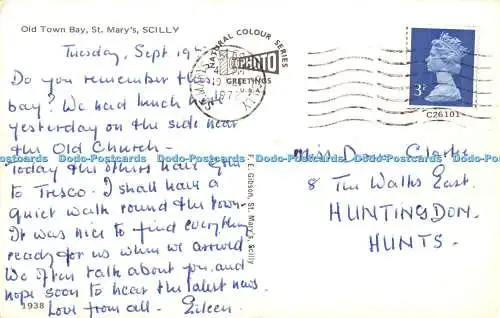 Old Town Bay, St. Mary's, SCILLY
Tuesday, Sept 19
Do you remember this
bay? We had lunch here
yesterday on the side near
the Old Church -
Today the others have gone
to Tresco. I shall have a
quiet walk round the town.
It was nice to find everything
ready for us when we arrived
We often talk about you, and
hope soon to hear the latest news.
Love from all - Eileen.
1938
NATURAL COLOUR SERIES
GREETINGS
F. E. Gibson, St. Mary's, Scilly
3P
C26101
Miss Clarke
8 The Walks East.
HUNTINGDON.
HUNTS.
Dodo-Postcards Dodo-Postcards Dodo-Postcards Dodo-Postcards Dodo-Postcards Dodo-Postcards